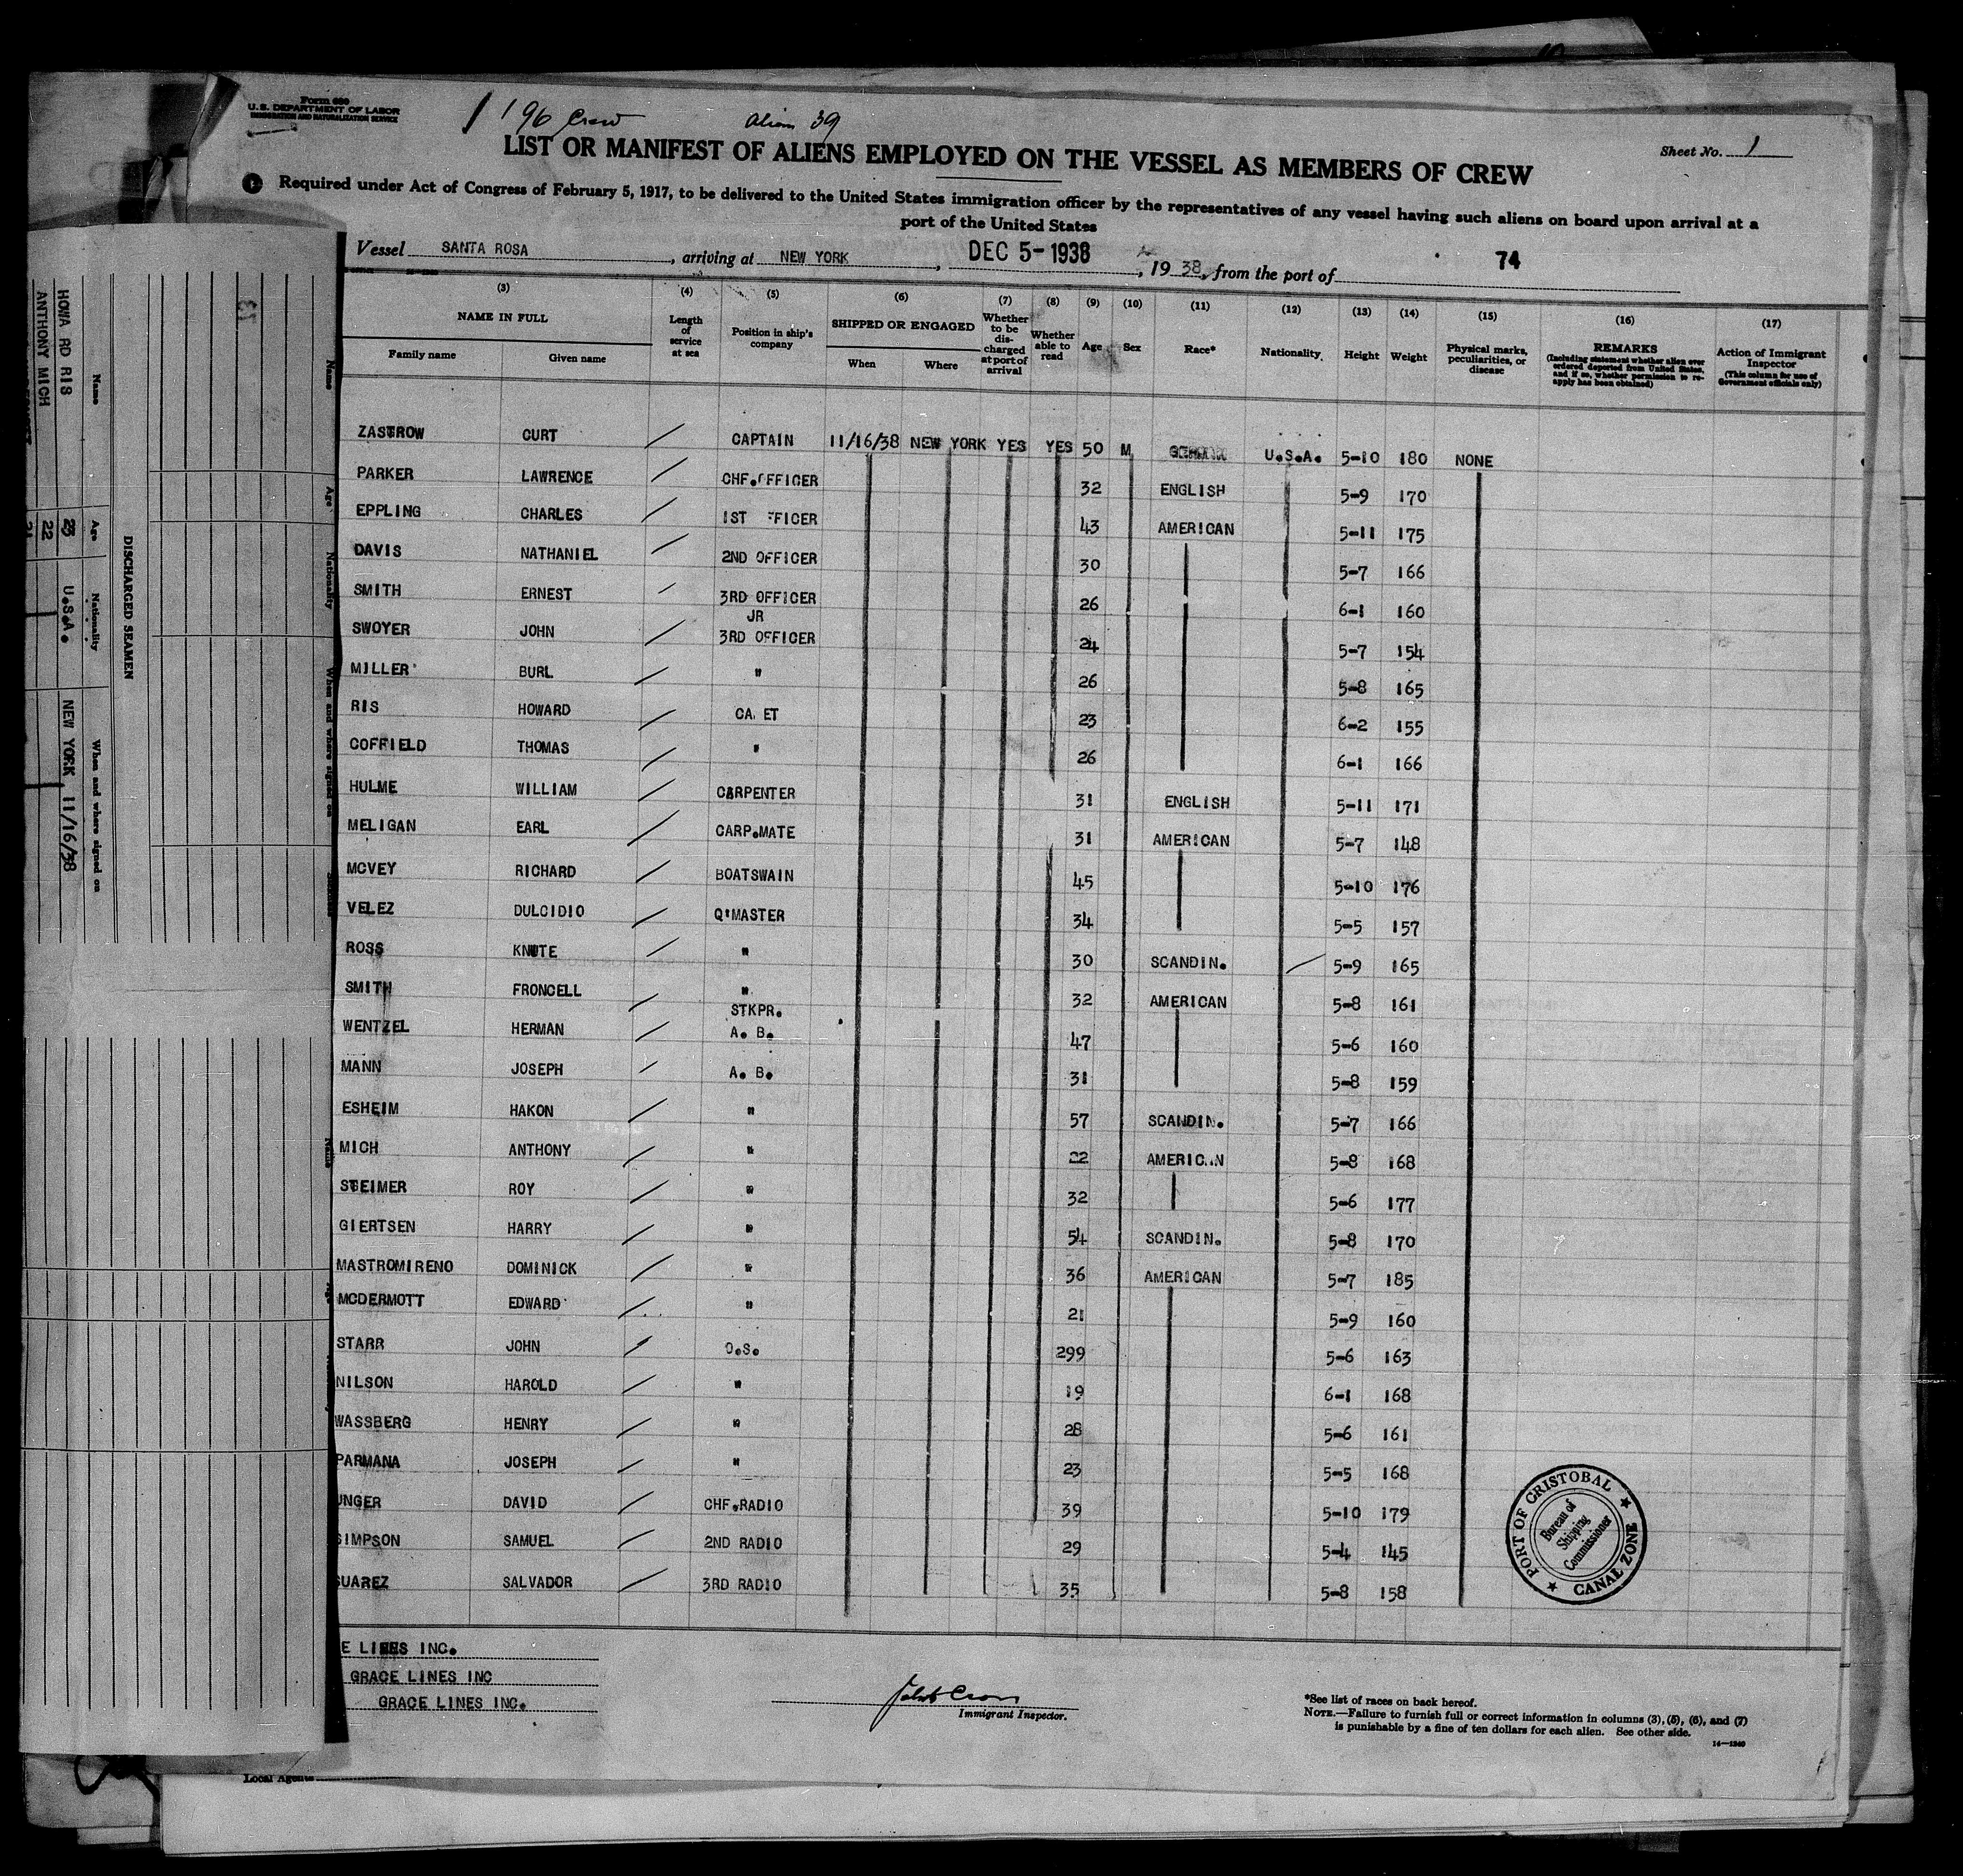 Form 680
U.S. DEPARTMENT OF LABOR
IMMIGRATION AND NATURALIZATION SERVICE
196 Crew Alien 39
Sheet No. 1
LIST OR MANIFEST OF ALIENS EMPLOYED ON THE VESSEL AS MEMBERS OF CREW
Required under Act of Congress of February 5, 1917, to be delivered to the United States immigration officer by the representatives of any vessel having such aliens on board upon arrival at a
port of the United States
Vessel SANTA ROSA, arriving at NEW YORK, DEC 5-1938, 1938, from the port of 74
(3) (4) (5) (6) (7) (8) (9) (10) (11) (12) (13) (14) (15) (16) (17)
NAME IN FULL
Family name Given name
Length of service at sea
Position in ship's company
SHIPPED OR ENGAGED
When Where
Whether to be discharged at port of arrival
Whether able to read
Age Sex Race* Nationality Height Weight
Physical marks, peculiarities, or disease
REMARKS
(Including statement whether alien ever ordered deported from United States, and if so, whether permission to reapply has been obtained)
Action of Immigrant Inspector
(This column for use of Government officials only)
ZASTROW CURT CAPTAIN 11/16/38 NEW YORK YES YES 50 M U.S.A. 5-10 180 NONE
PARKER LAWRENCE CHF.OFFICER 32 ENGLISH 5-9 170
EPPLING CHARLES 1ST FFICER 43 AMERICAN 5-11 175
DAVIS NATHANIEL 2ND OFFICER 30 5-7 166
SMITH ERNEST 3RD OFFICER 26 6-1 160
SWOYER JOHN JR 3RD OFFICER 24 5-7 154
MILLER BURL " 26 5-8 165
RIS HOWARD CA ET 23 6-2 155
COFFIELD THOMAS " 26 6-1 166
HULME WILLIAM CARPENTER 31 ENGLISH 5-11 171
MELIGAN EARL CARP.MATE 31 AMERICAN 5-7 148
MCVEY RICHARD BOATSWAIN 45 5-10 176
VELEZ DULCIDIO Q'MASTER 34 5-5 157
ROSS KNUTE " 30 SCANDIN. 5-9 165
SMITH FRONCELL " 32 AMERICAN 5-8 161
WENTZEL HERMAN STKPR. A. B. 47 5-6 160
MANN JOSEPH A. B. 31 5-8 159
ESHEIM HAKON " 57 SCANDIN. 5-7 166
MICH ANTHONY " 22 AMERIC.N 5-8 168
STEIMER ROY " 32 5-6 177
GIERTSEN HARRY " 54 SCANDIN. 5-8 170
MASTROMIRENO DOMINICK " 36 AMERICAN 5-7 185
MCDERMOTT EDWARD " 21 5-9 160
STARR JOHN O.S. 299 5-6 163
NILSON HAROLD " 19 6-1 168
WASSBERG HENRY " 28 5-6 161
PARMANA JOSEPH " 23 5-5 168
UNGER DAVID CHF.RADIO 39 5-10 179
SIMPSON SAMUEL 2ND RADIO 29 5-4 145
SUAREZ SALVADOR 3RD RADIO 35 5-8 158
PORT OF CRISTOBAL
CANAL ZONE
Bureau of
Shipping
Commissioner
E LINES INC.
GRACE LINES INC
GRACE LINES INC.
Immigrant Inspector.
*See list of races on back hereof.
NOTE.—Failure to furnish full or correct information in columns (3), (5), (6), and (7)
is punishable by a fine of ten dollars for each alien. See other side.
14—1240
Local Agents
DISCHARGED SEAMEN
Name Age Nationality When and where signed on
HOWA RD RIS 23 U.S.A. NEW YORK 11/16/38
ANTHONY MICH 22
Name Age Nationality When and where signed on